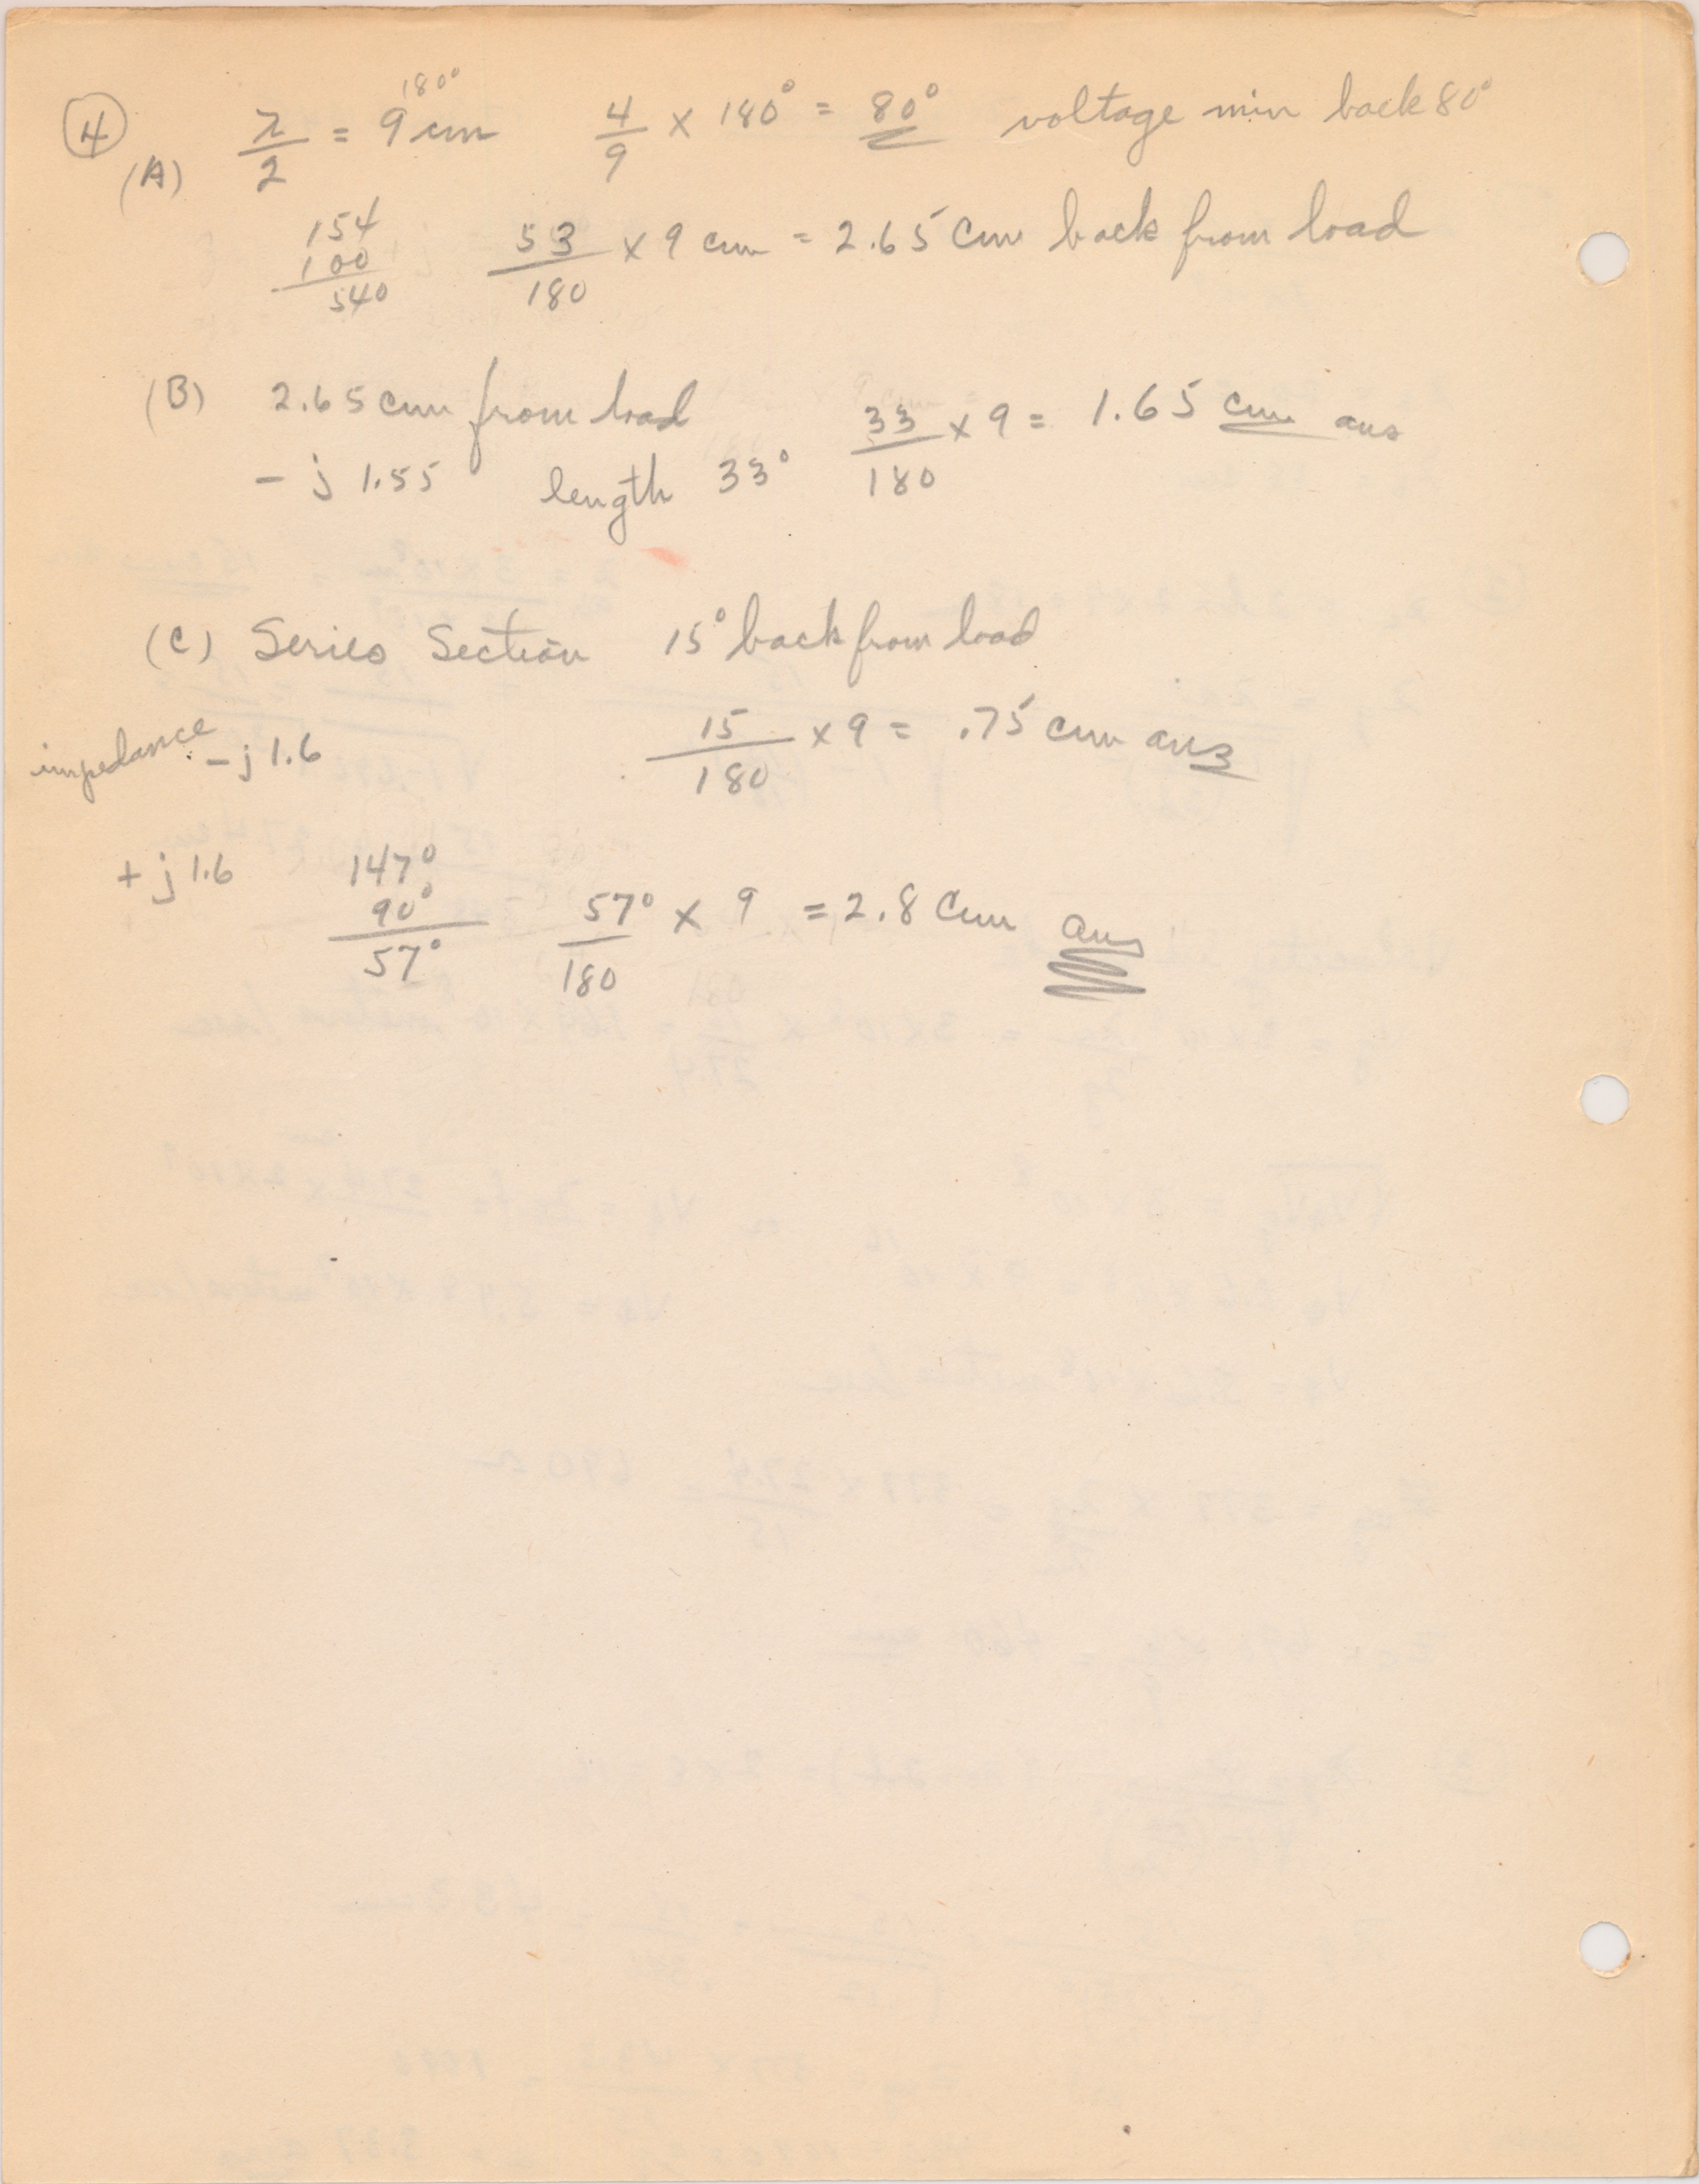 ④ 180°
(A) λ/2 = 9 cm 4/9 × 180° = 80° voltage min back 80°
154
100
540
53/180 × 9 cm = 2.65 cm back from load
(B) 2.65 cm from load 33/180 × 9 = 1.65 cm ans
- j 1.55 length 33°
(C) Series Section 15° back from load
impedance - j 1.6 15/180 × 9 = .75 cm ans
+ j 1.6 147°
90°
57°
57°/180 × 9 = 2.8 cm ans